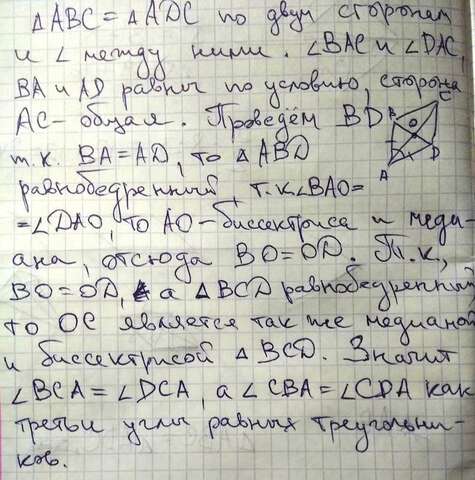 △ABC = △ADC по двум сторонам
и ∠ между ними. ∠BAC и ∠DAC,
BA и AD равны по условию, сторона
AC - общая. Проведём BD
т.к. BA = AD, то △ABD
равнобедренный, т.к. ∠BAO =
= ∠DAO, то AO - биссектриса и меди-
ана, отсюда BO = OD. Т.к.,
BO = OD, а △BCD равнобедренный
то OC является так же медианой
и биссектрисой △BCD. Значит
∠BCA = ∠DCA, а ∠CBA = ∠CDA как
третьи углы равных треугольни-
ков.
C
B
O
D
A